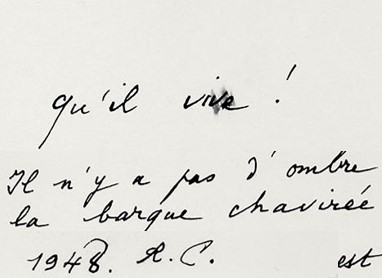 qu'il vive !
Il n'y a pas d'ombre
la barque chavirée
1948. R.C. est